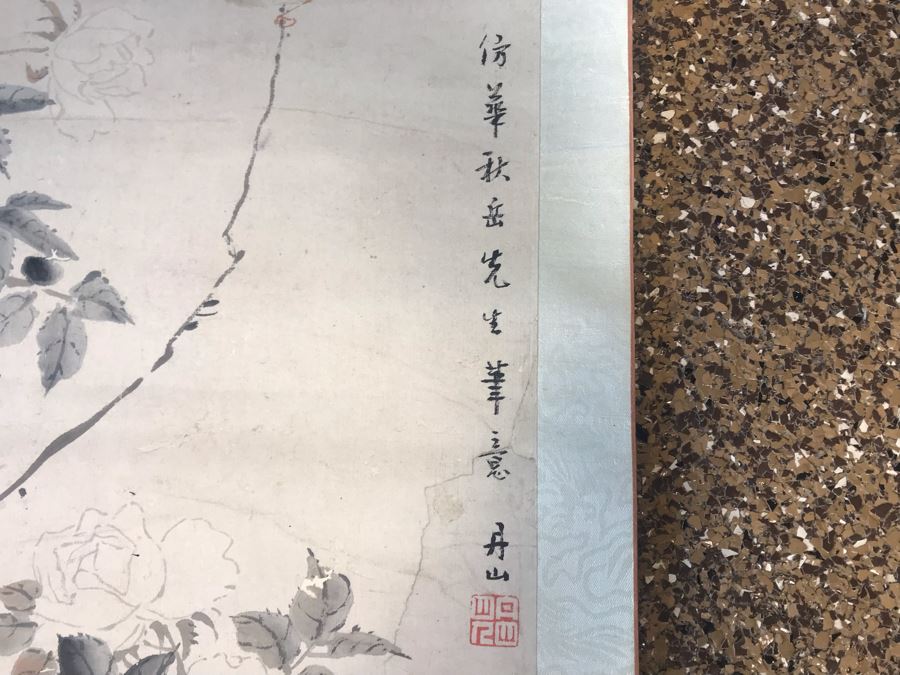 仿華秋岳先生筆意
丹山